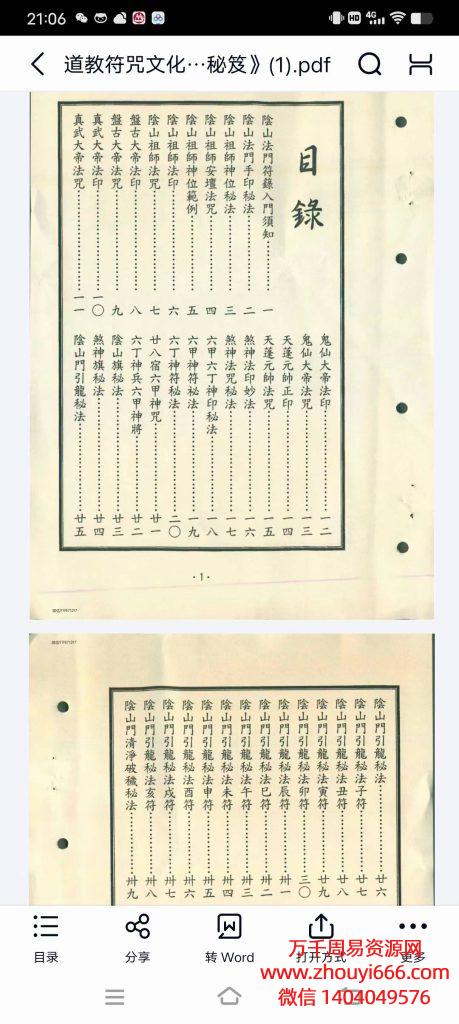 21:06
4G
道教符咒文化…秘笈》(1).pdf
目錄
陰山法門符籙入門須知 一
陰山法門手印秘法 二
陰山祖師神位秘法 三
陰山祖師安壇法咒 四
陰山祖師神位範例 五
陰山祖師法印 六
陰山祖師法咒 七
盤古大帝法印 八
盤古大帝法咒 九
真武大帝法印 一〇
真武大帝法咒 一一
鬼仙大帝法印 一二
鬼仙大帝法咒 一三
天蓬元帥正印 一四
天蓬元帥法咒 一五
煞神法印妙法 一六
煞神法咒秘法 一七
六甲六丁神印秘法 一八
六甲神符秘法 一九
六丁神符秘法 二〇
廿八宿六甲神咒 廿一
六丁神兵六甲神將 廿二
陰山旗秘法 廿三
煞神旗秘法 廿四
陰山門引龍秘法 廿五
·1·
陰山門引龍秘法 廿六
陰山門引龍秘法子符 廿七
陰山門引龍秘法丑符 廿八
陰山門引龍秘法寅符 廿九
陰山門引龍秘法卯符 三〇
陰山門引龍秘法辰符 卅一
陰山門引龍秘法巳符 卅二
陰山門引龍秘法午符 卅三
陰山門引龍秘法未符 卅四
陰山門引龍秘法申符 卅五
陰山門引龍秘法酉符 卅六
陰山門引龍秘法戌符 卅七
陰山門引龍秘法亥符 卅八
陰山門清淨破穢秘法 卅九
目录
分享
转 Word
打开方式
更多
万千周易资源网
www.zhouyi666.com
微信 1404049576